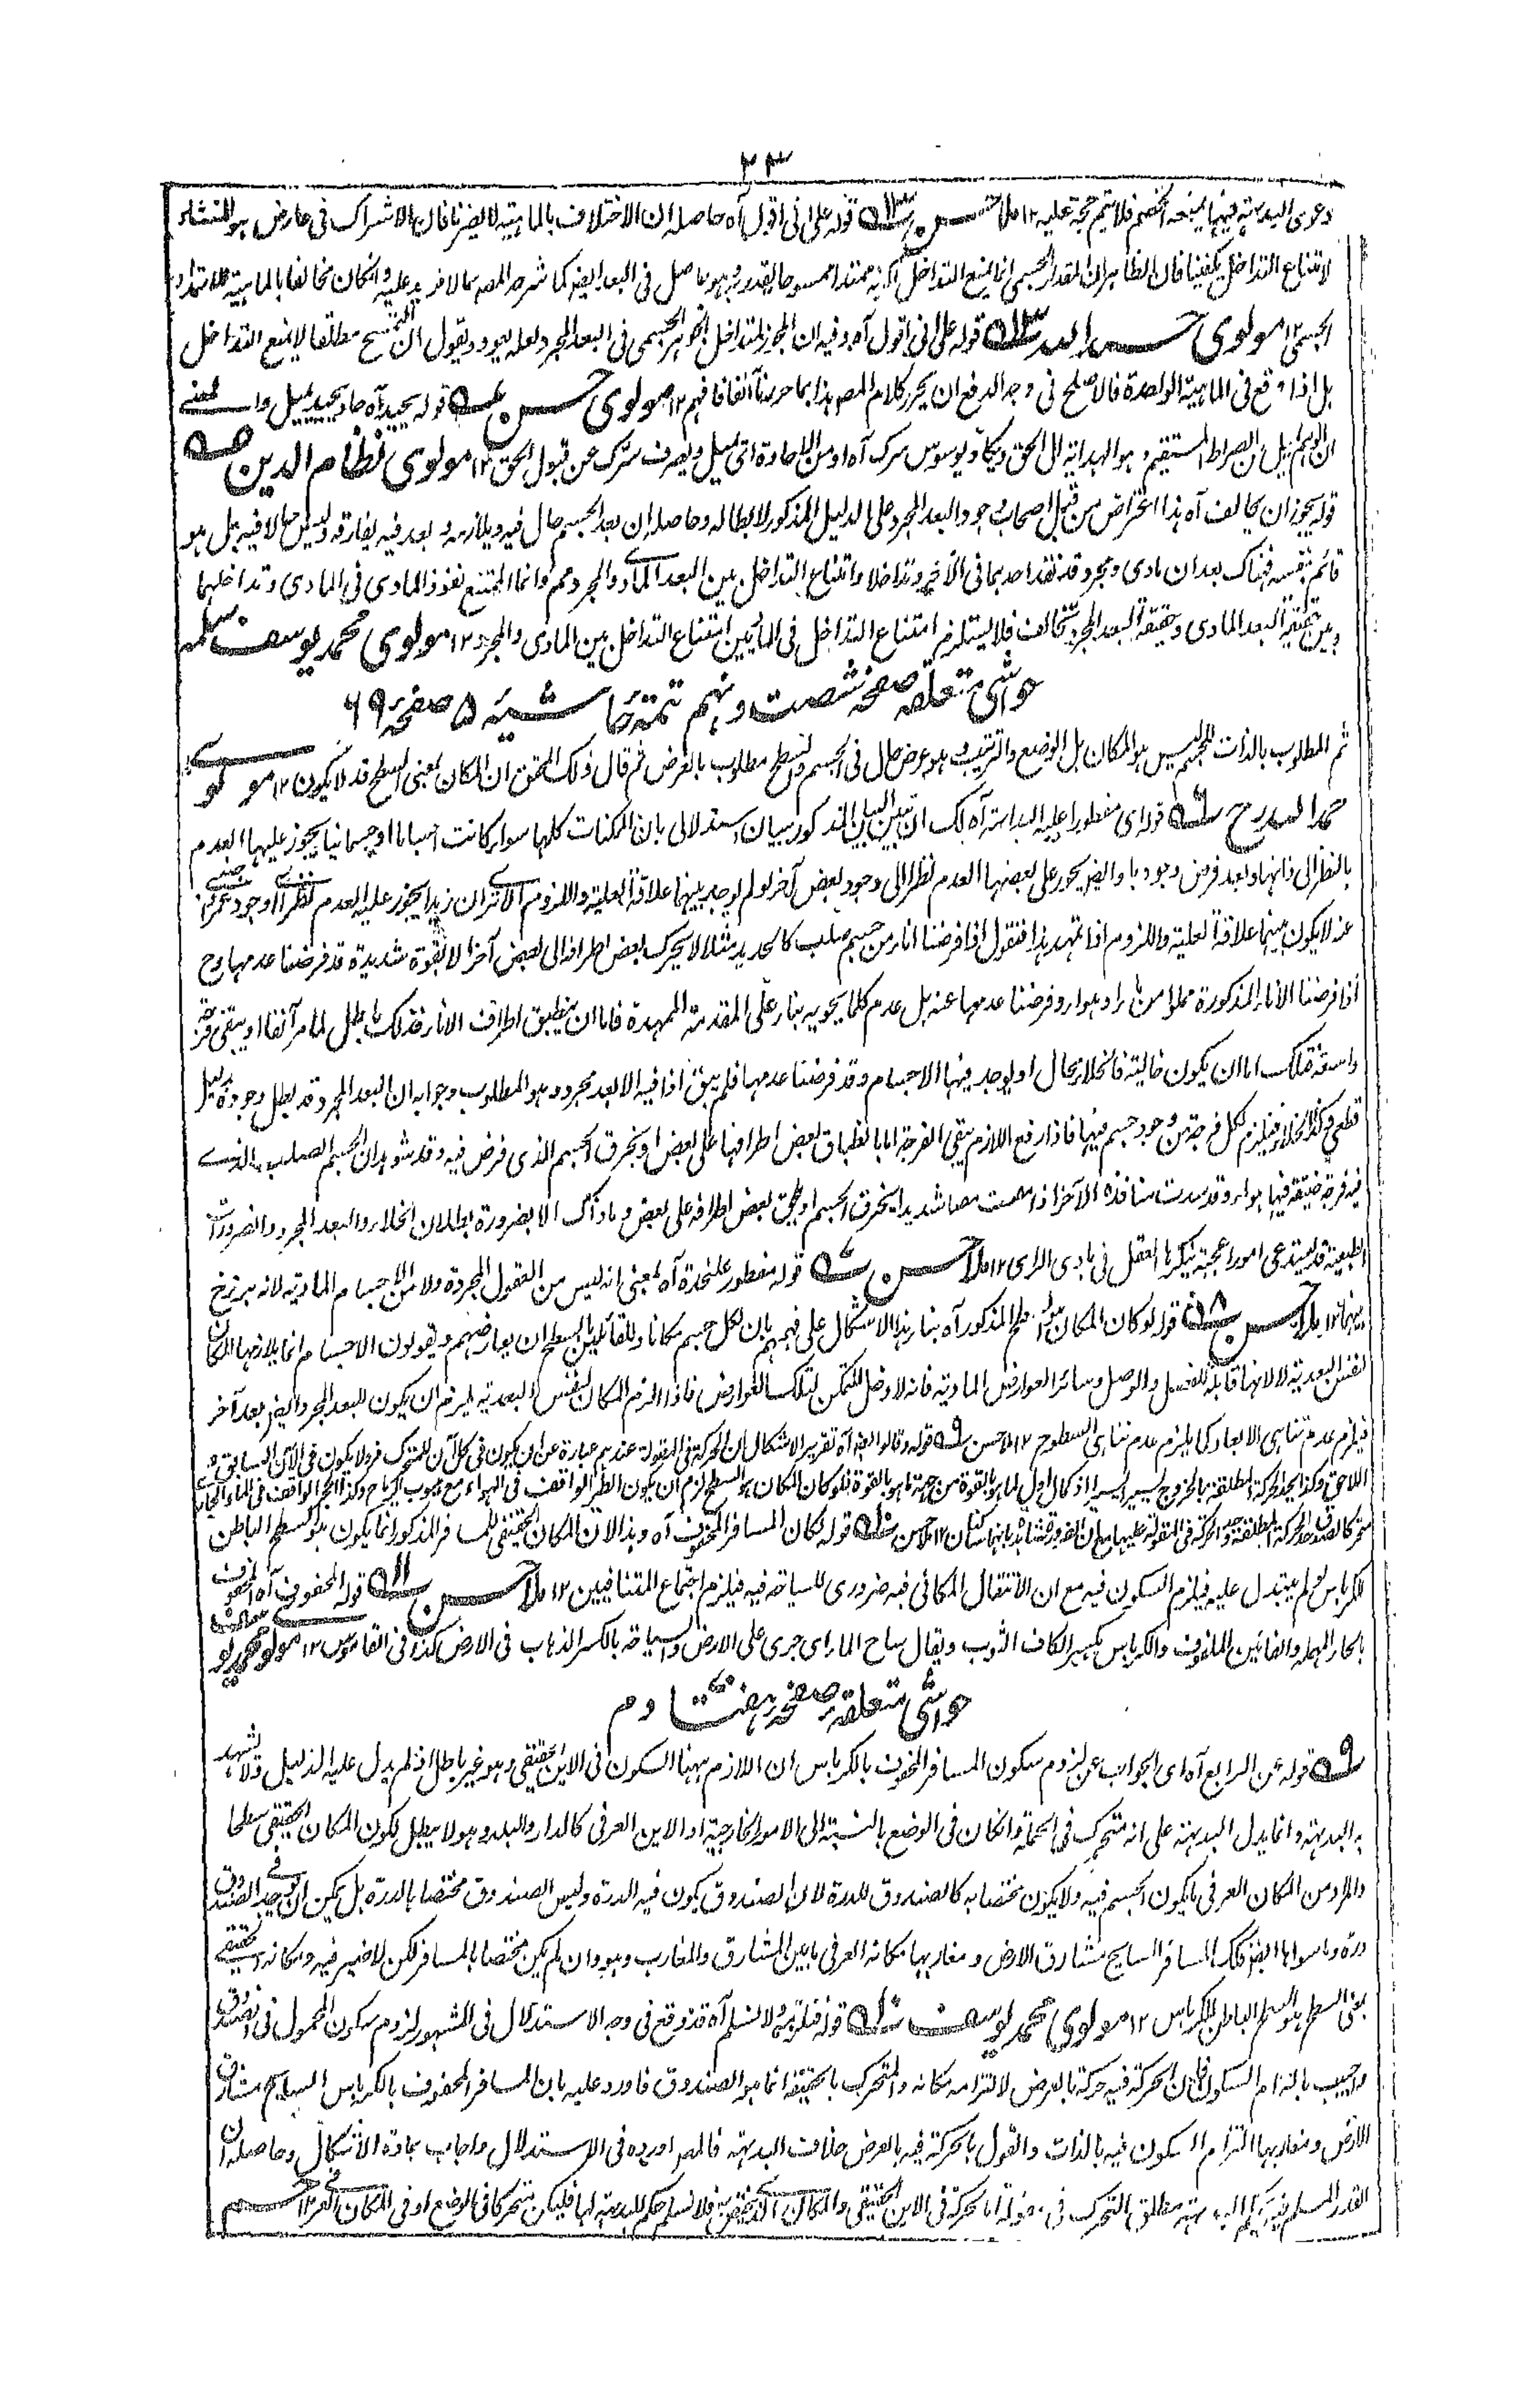 ٣٣
دعوى البديهة فيهما يمنعه الخصم فلا يتم حجة عليه ١٢ ملا حسن قوله على انى اقول آه حاصله ان الاختلاف بالماهية لا يضرنا فان الاشتراك فى عارض هو المنشاء
لامتناع التداخل يكفينا فان الظاهر ان المقدار الجسمى انما يمنع التداخل لكونه ممتدا ممسوحا بقدر وهو حاصل فى البعد ايضا كما شرحه المصـ بما لا مزيد عليه وان كان مخالفا بالماهية للامتداد
الجسمى ١٢ مولوى حمد الله قوله على انى اقول آه وفيه ان المجوز لتداخل الجوهر الجسمى فى البعد المجرد لعله يعود ويقول ان التمسح مطلقا لا يمنع التداخل
بل اذا وقع فى الماهية الواحدة فالاصلح فى وجه الدفع ان يحرر كلام المصـ هذا بما حررنا آنفا فافهم ١٢ مولوى حسن قوله يحيد آه حاد يحيد يميل والمعنى
ان الوهم يميل عن الصراط المستقيم وهو الهداية الى الحق ويوسوس سرك آه او من الاحادة اى يميل ويصرف سرك عن قبول الحق ١٢ مولوى نظام الدين
قوله يجوز ان يخالف آه هذا اعتراض من قبل اصحاب وجود البعد المجرد على الدليل المذكور لابطاله وحاصله ان بعد الجسم حال فيه ويلازمه وبعد فيه يفارقه وليس حالا فيه بل هو
قائم بنفسه فهناك بعدان مادى ومجرد قد نفذ احدهما فى الآخر وتداخلا وامتناع التداخل بين البعد المادى والمجرد ممـ وانما الممتنع نفوذ المادى فى المادى وتداخلهما
وبين حقيقة البعد المادى وحقيقة البعد المجرد تخالف فلا يستلزم امتناع التداخل فى الماديين امتناع التداخل بين المادى والمجرد ١٢ مولوى محمد يوسف سلمه
حواشى متعلقه صفحه شصت ونهم تتمهٔ حاشيه ٥ صفحه ٦٩
ثم المطلوب بالذات للجسم ليس هو المكان بل الوضع والترتيب وهو عرض حال فى الجسم والسطح مطلوب بالعرض ثم قال ذلك المحقق ان المكان بمعنى السطح قد لا يكون ١٢ مولوى
حمد الله رح قوله اى مفطورا عليه البداهة آه لك ان تبين البيان المذكور ببيان استدلالى بان الممكنات كلها سواء كانت اجساما او جسمانيا يجوز عليها العدم
بالنظر الى ذاتها وبعد فرض وجودها وايضا يجوز على بعضها العدم نظرا الى وجود بعض آخر لو لم يوجد بينهما علاقة العلية واللزوم الا ترى ان زيدا يجوز عليه العدم نظرا الى وجود عمرو
عنه لا يكون بينهما علاقة العلية واللزوم اذا تمهد هذا فنقول اذا فرضنا اناء من جسم صلب كالحديد مثلا لا يتحرك بعض اطرافه الى بعض آخر الا بقوة شديدة قد فرضنا عدمها وح
اذا فرضنا الاناء المذكورة مملوا من ماء او هواء وفرضنا عدمها عنه بل عدم كلما يحويه بناء على المقدمة الممهدة فاما ان ينطبق اطراف الاناء فذلك باطل لما مر آنفا او يبقى فرجة
واسعة فتلك اما ان يكون خالية فالخلاء محال او يوجد فيها الاجسام وقد فرضنا عدمها فلم يبق اذا فيه الا بعد مجرد وهو المطلوب وجوابه ان البعد المجرد قد بطل وجوده بدليل
قطعى وكذا الخلاء فيلزم لكل فرجة من وجود جسم فيها فاذا رفع اللازم يبقى الفرجة اما بانطباق بعض اطرافها على بعض او ينخرق الجسم الذى فرض فيه وقد شوهد ان الجسم الصلب الذى
فيه فرجة ضيقة فيها هواء وقد سدت منافذه الآخر اذا مصت مصا شديدا ينخرق الجسم او يلحق بعض اطرافه على بعض وما ذاك الا بضرورة بطلان الخلاء والبعد المجرد والضرورات
الطبعية قد يستدعى امورا عجيبة ينكرها العقل فى بادى الراى ١٢ ملا حسن قوله مفطور على حدة آه بمعنى انه ليس من العقول المجردة ولا من الاجسام المادية لانه برزخ
بينهما ١٢ ملا حسن قوله لو كان المكان هو السطح المذكور آه بناء هذا الاشكال على فهمهم بان لكل جسم مكانا وللقائلين بالسطح ان يعارضهم ويقولون الاجسام انما يلازمها المكان
لنفس البعدية لا لانها قابلة للفصل والوصل وسائر العوارض المادية فانه لا دخل للتمكن لتلك العوارض فاذا لزم المكان لنفس البعدية يلزم ان يكون للبعد المجرد ايضا بعد آخر
فيلزم عدم تناهى الابعاد كما يلزم عدم تناهى السطوح ١٢ ملا حسن قوله وقالوا ايضا آه تقرير الاشكال ان الحركة فى المقولة عندهم عبارة عن ان يكون فى كل آن للمتحرك فرد لا يكون فى الآن السابق و
اللاحق وكذا يحد الحركة المطلقة بالخروج يسيرا يسيرا او كمال اول لما هو بالقوة من جهة ما هو بالقوة فلو كان المكان هو السطح لزم ان يكون الطير الواقف فى الهواء مع هبوب الرياح وكذا الحجر الواقف فى الماء الجارى
متحركا لصدق حد الحركة المطلقة وحد الحركة فى المقولة عليهما مع ان الضرورة شاهد بانهما ساكنان ١٢ ملا حسن قوله لكان المسافر المحفوف آه وهذا لان المكان الحقيقى للمسافر المذكور انما يكون هو السطح الباطن
للكرباس لم يتبدل عليه فيلزم السكون فيه مع ان الانتقال المكانى فيه ضرورى للسياحة فيه فيلزم اجتماع المتنافيين ١٢ ملا حسن قوله المحفوف آه
بالحاء المهملة والفائين الملفوف والكرباس بكسر الكاف الثوب ويقال ساح الماء اى جرى على الارض والسياحة بالكسر الذهاب فى الارض كذا فى القاموس ١٢ مولوى محمد يوسف
حواشى متعلقه صفحه هفتادم
قوله عن الرابع آه اى الجواب عن لزوم سكون المسافر المحفوف بالكرباس ان اللازم ههنا السكون فى الاين الحقيقى وهو غير باطل اذ لم يدل عليه الدليل ولا تشهد
به البديهة وانما يدل البديهة على انه متحرك فى الجملة وان كان فى الوضع بالنسبة الى الامور الخارجية او الاين العرفى كالدار والبلد وهو لا يبطل لكون المكان الحقيقى سطحا
والمراد من المكان العرفى ما يكون الجسم فيه ولا يكون مختصا به كالصندوق للدرة لان الصندوق يكون فيه الدرة وليس الصندوق مختصا بالدرة بل يمكن ان يوجد فى الصندوق
درة وما سواها ايضا فكذا المسافر السايح مشارق الارض ومغاربها مكانه العرفى ما بين المشارق والمغارب وهو وان لم يكن مختصا بالمسافر لكن لا ضير فيه ومكانه الحقيقى
بمعنى السطح هو السطح الباطن للكرباس ١٢ مولوى محمد يوسف قوله فنلتزمه ولا نسلم آه قد وقع فى وجه الاستدلال فى المشهور لزوم سكون المحمول فى الصندوق
واجيب بالتزام السكون فان الحركة فيه حركة بالعرض لالتزامه مكانه والمتحرك بالحقيقة انما هو الصندوق فاورد عليه بان المسافر المحفوف بالكرباس السايح مشارق
الارض ومغاربها التزام السكون فيه بالذات والقول بالحركة فيه بالعرض خلاف البديهة فالمصـ اورده فى الاستدلال واجاب بمادة الاشكال وحاصله ان
القدر المسلم فيه بحكم البديهة مطلق التحرك فى مقولة اما الحركة فى الاين الحقيقى والمكان الذى يختص به فلا نسلم حكم البديهة لها فليكن متحركا فى الوضع او فى المكان العرفى ١٢